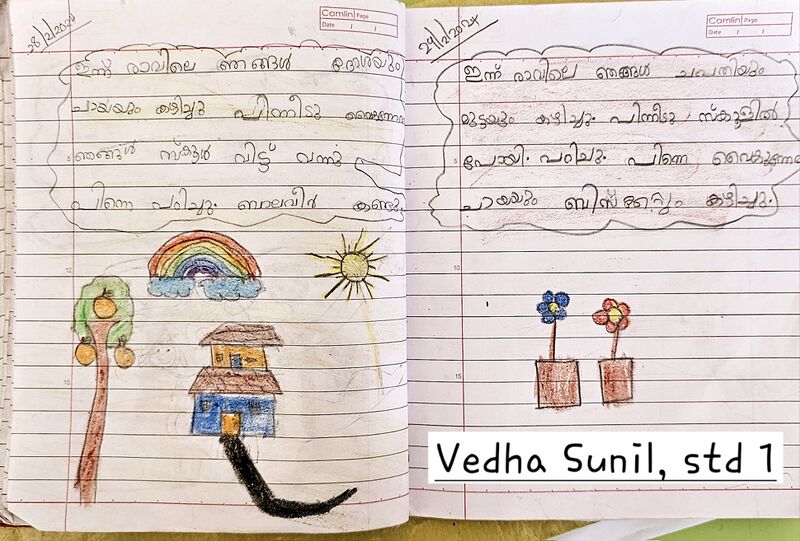 28/2/2024
Camlin Page
Date / /
ഇന്ന് രാവിലെ ഞങ്ങൾ ദോശയും
ചായയും കഴിച്ചു പിന്നീടു വൈകുന്നേരം
ഞങ്ങൾ സ്കൂൾ വിട്ട് വന്നു
പിന്നെ പഠിച്ചു. ബാലവീർ കണ്ടു.
10
15
29/2/2024
Camlin Page
Date / /
ഇന്ന് രാവിലെ ഞങ്ങൾ ചപത്തിയും
മുട്ടയും കഴിച്ചു. പിന്നീടു സ്കൂളിൽ
പോയി. പഠിച്ചു. പിന്നെ വൈകുന്നേരം
ചായയും ബിസ്ക്കറ്റും കഴിച്ചു.
10
15
Vedha Sunil, std 1